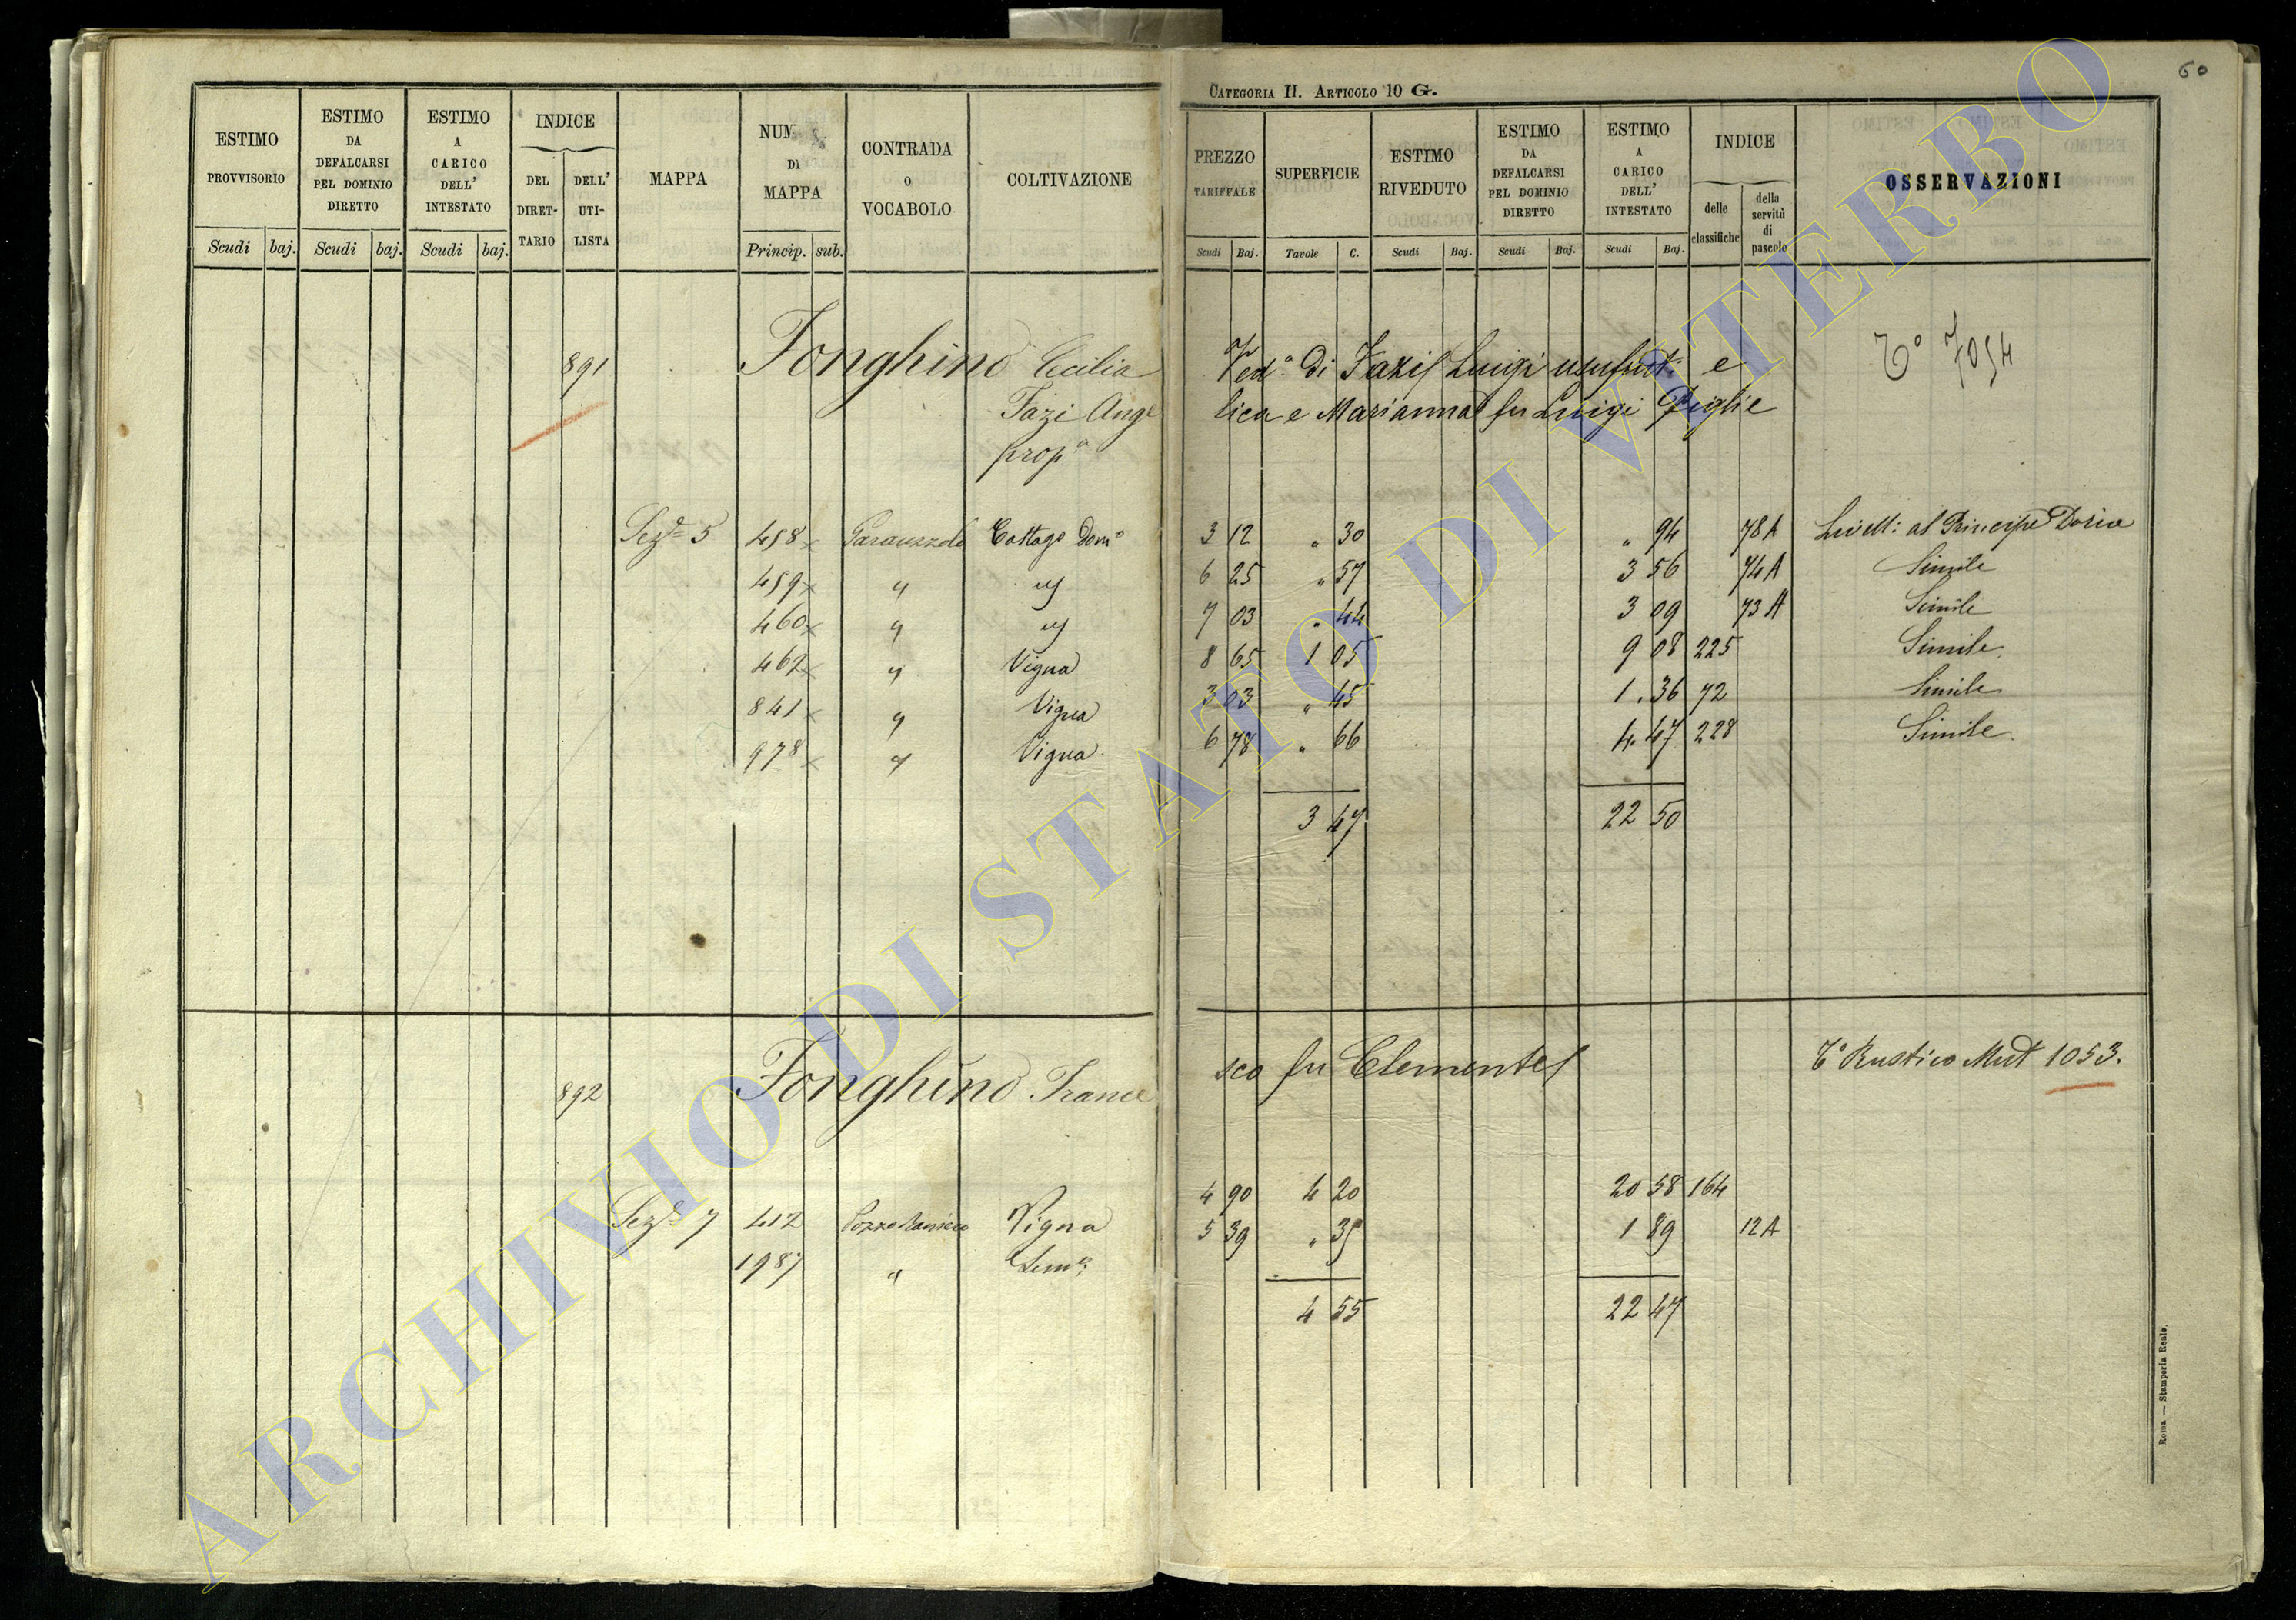 60
CATEGORIA II. ARTICOLO 10 G.
ESTIMO PROVVISORIO
ESTIMO DA DEFALCARSI PEL DOMINIO DIRETTO
ESTIMO A CARICO DELL' INTESTATO
INDICE
DEL DIRET-TARIO
DELL' UTI-LISTA
MAPPA
NUM DI MAPPA
CONTRADA O VOCABOLO
COLTIVAZIONE
PREZZO TARIFFALE
SUPERFICIE
ESTIMO RIVEDUTO
ESTIMO DA DEFALCARSI PEL DOMINIO DIRETTO
ESTIMO A CARICO DELL' INTESTATO
INDICE
delle classifiche
della servitù di pascolo
OSSERVAZIONI
Scudi baj. Scudi baj. Scudi baj. Princip. sub.
Scudi Baj. Tavole C. Scudi Baj. Scudi Baj. Scudi Baj.
891 Fonghino Cecilia Ved.a di Fazi Luigi usufrut. e To 7054
Fazi Ange lica e Marianna fu Luigi Figlie
prop.a
Sez.e 5 458 x 3 12 " 30 " 94 78A Livell: al Principe Doria
459 x " " 6 25 " 57 3 56 74A Simile
460 x " " 7 03 " 44 3 09 73A Simile
462 x " Vigna 8 65 1 05 9 08 225 Simile
841 x " Vigna 3 03 " 45 1.36 72 Simile
978 x " Vigna 6 78 " 66 4.47 228 Simile
3 47 22 50
892 Fonghino France sco fu Clemente To Rustico Mut 1053.
Sez.e 7 412 Vigna 4 90 4 20 20 58 164
1987 " Sem.o 5 39 " 35 1 89 12A
4 55 22 47
Roma — Stamperia Reale.
ARCHIVIO DI STATO DI VITERBO